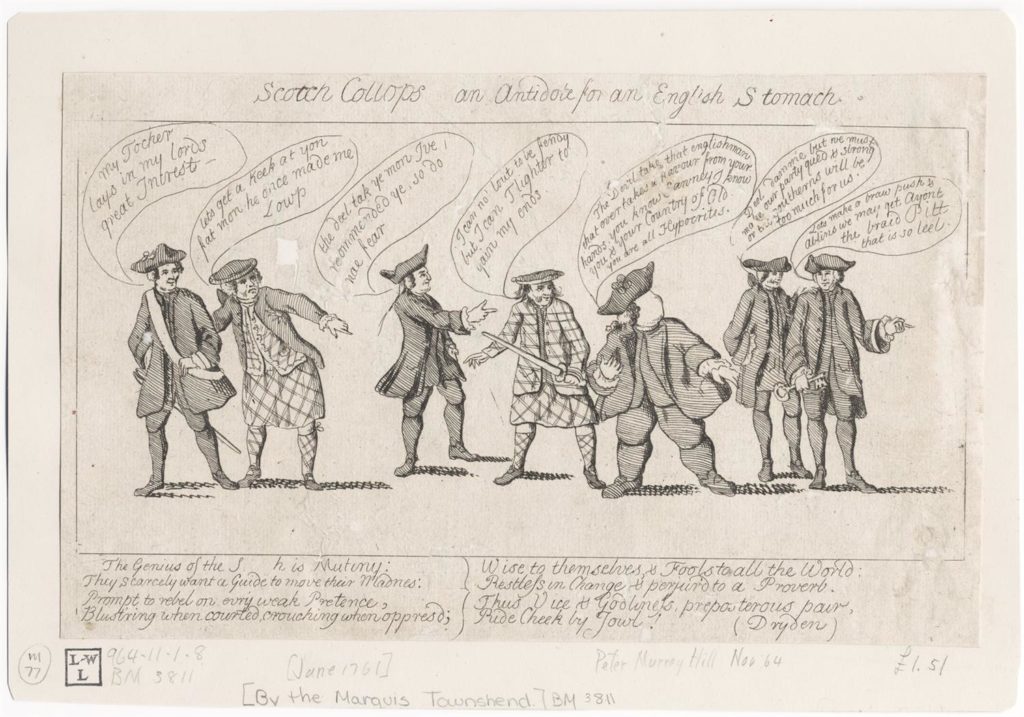 Scotch Collops an Antidote for an English Stomach.
My Tocher
lays in my lords
great Intrest
lets get a keek at yon
fat mon he once made me
Lowp
the deel tak ye mon I've
recommended ye. so do
nae fear
I can no' lout to be fendy
but I can Flighter to
gain my ends
The Devil take that englishman
that over takes a favour from your
hands, you know Sawney I know
you & your Country of Old
you are all Hypocrites.
Deel Damme but we must
make our party gued & strong
or the Southerns will be
too much for us.
Lets make a braw push &
ablins we may get Ayont
the braid Pitt
that is so leel.
The Genius of the S h is Mutiny:
They scarcely want a Guide to move their Madnes:
Prompt to rebel on evry weak Pretence,
Blustring when courted, crouching when oppresd;
Wise to themselves, & Fools to all the World:
Restless in Change & perjurd to a Proverb.
Thus Vice & Godliness, preposterous pair,
Ride Cheek by Jowl!
(Dryden)
m
77
L·W
L
964-11-1-8
BM 3811
[June 1761]
Peter Murray Hill Nov '64
£1.51
[By the Marquis Townshend.] BM 3811